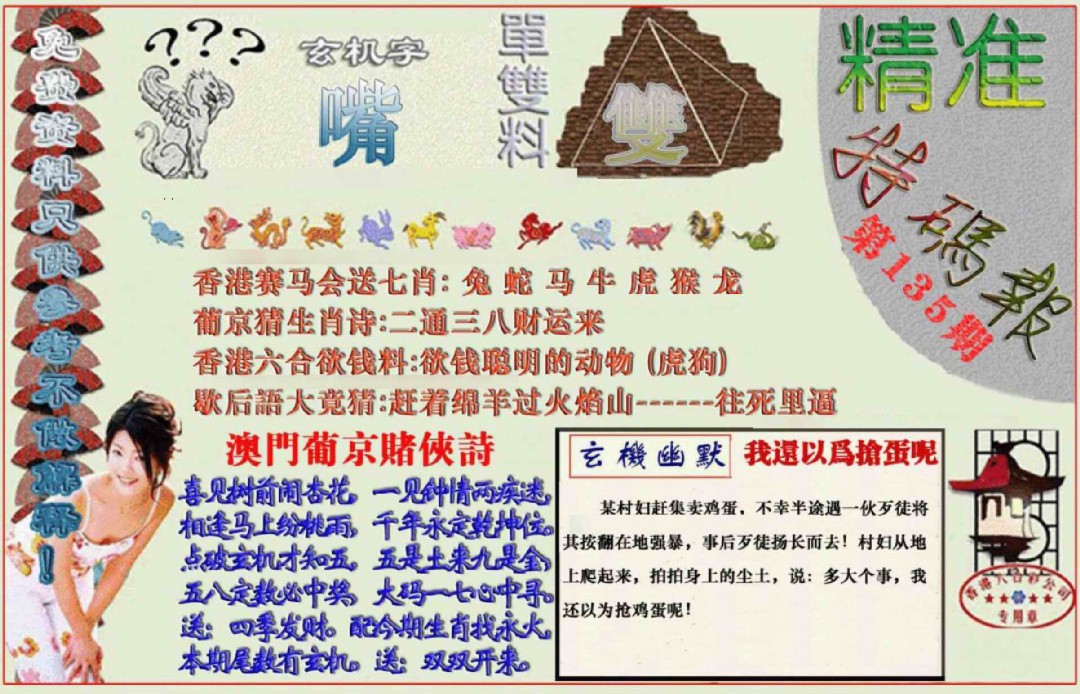 免费资料只供参考不做解释!
???
玄机字
嘴
單雙料
雙
精准
特碼報
第135期
香港赛马会送七肖: 兔 蛇 马 牛 虎 猴 龙
葡京猜生肖诗:二通三八财运来
香港六合欲钱料:欲钱聪明的动物 (虎狗)
歇后語大竟猜:赶着绵羊过火焰山------往死里逼
澳門葡京賭俠詩
喜见树前闹杏花, 一见钟情两疾迷,
相逢马上纷桃雨, 千年永定乾坤位。
点破玄机才知五, 五是土来九是金,
五八定数必中奖, 大码一七心中寻。
送: 四季发财。配今期生肖找永火,
本期尾数有玄机。送: 双双开来。
玄機幽默
我還以爲搶蛋呢
某村妇赶集卖鸡蛋，不幸半途遇一伙歹徒将
其按翻在地强暴，事后歹徒扬长而去！村妇从地
上爬起来，拍拍身上的尘土，说：多大个事，我
还以为抢鸡蛋呢！
香港六合彩公司
专用章